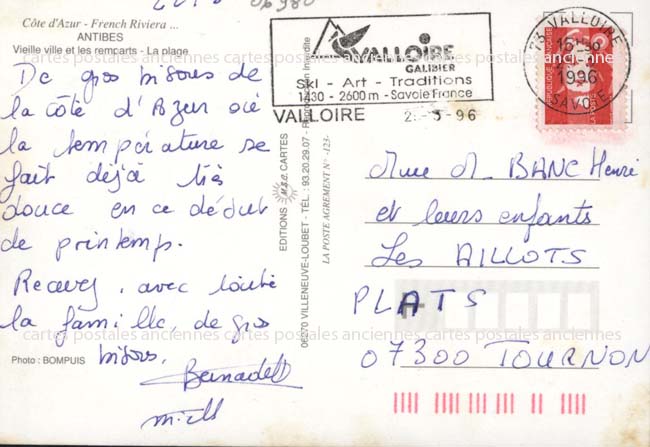 06980
Côte d'Azur - French Riviera ...
ANTIBES
Vieille ville et les remparts - La plage
De gros bisous de
la côte d'Azur où
la température se
fait déjà très
douce en ce début
de printemps.
Recevez, avec toute
la famille, de gros
bisous.
Bernadett
Photo : BOMPUIS
EDITIONS MSE CARTES
06270 VILLENEUVE-LOUBET - TEL : 93.20.29.07 - Reproduction Interdite
LA POSTE AGREMENT N° -123-
VALLOIRE
GALIBIER
Ski - Art - Traditions
1430 - 2600 m - Savoie France
VALLOIRE
73 VALLOIRE
1996
SAVOIE
REPUBLIQUE FRANÇAISE
LA POSTE
BANC Henri
et leurs enfants
Les AILLOTS
PLATS
07300 TOURNON
cartes postales anciennes cartes postales anciennes cartes postales anciennes
cartes postales anciennes cartes postales anciennes cartes postales anciennes